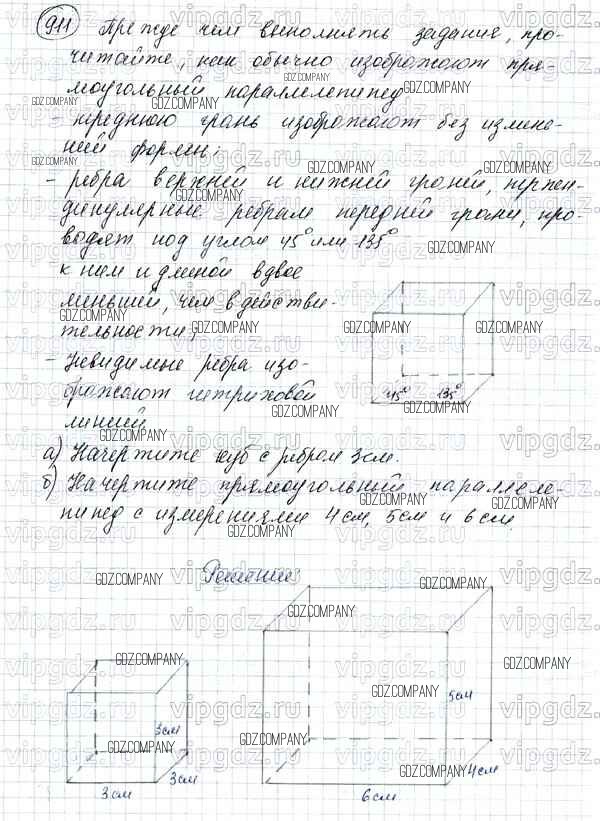 911 Прежде чем выполнять задание, про-
читайте, как обычно изображают пря-
моугольный параллелепипед
- переднюю грань изображают без измене-
ний формы;
- ребра верхней и нижней граней, перпен-
дикулярные ребрам передней грани, про-
водят под углом 45° или 135°
к ним и длиной вдвое
меньшей, чем в действи-
тельности;
- Невидимые ребра изо-
бражают штриховой
линией
45° 135°
а) Начертите куб с ребром 3 см.
б) Начертите прямоугольный параллеле-
пипед с измерениями 4 см, 5 см и 6 см.
Решение:
3 см
3 см
3 см
5 см
4 см
6 см
vipgdz.ru
GDZ.COMPANY